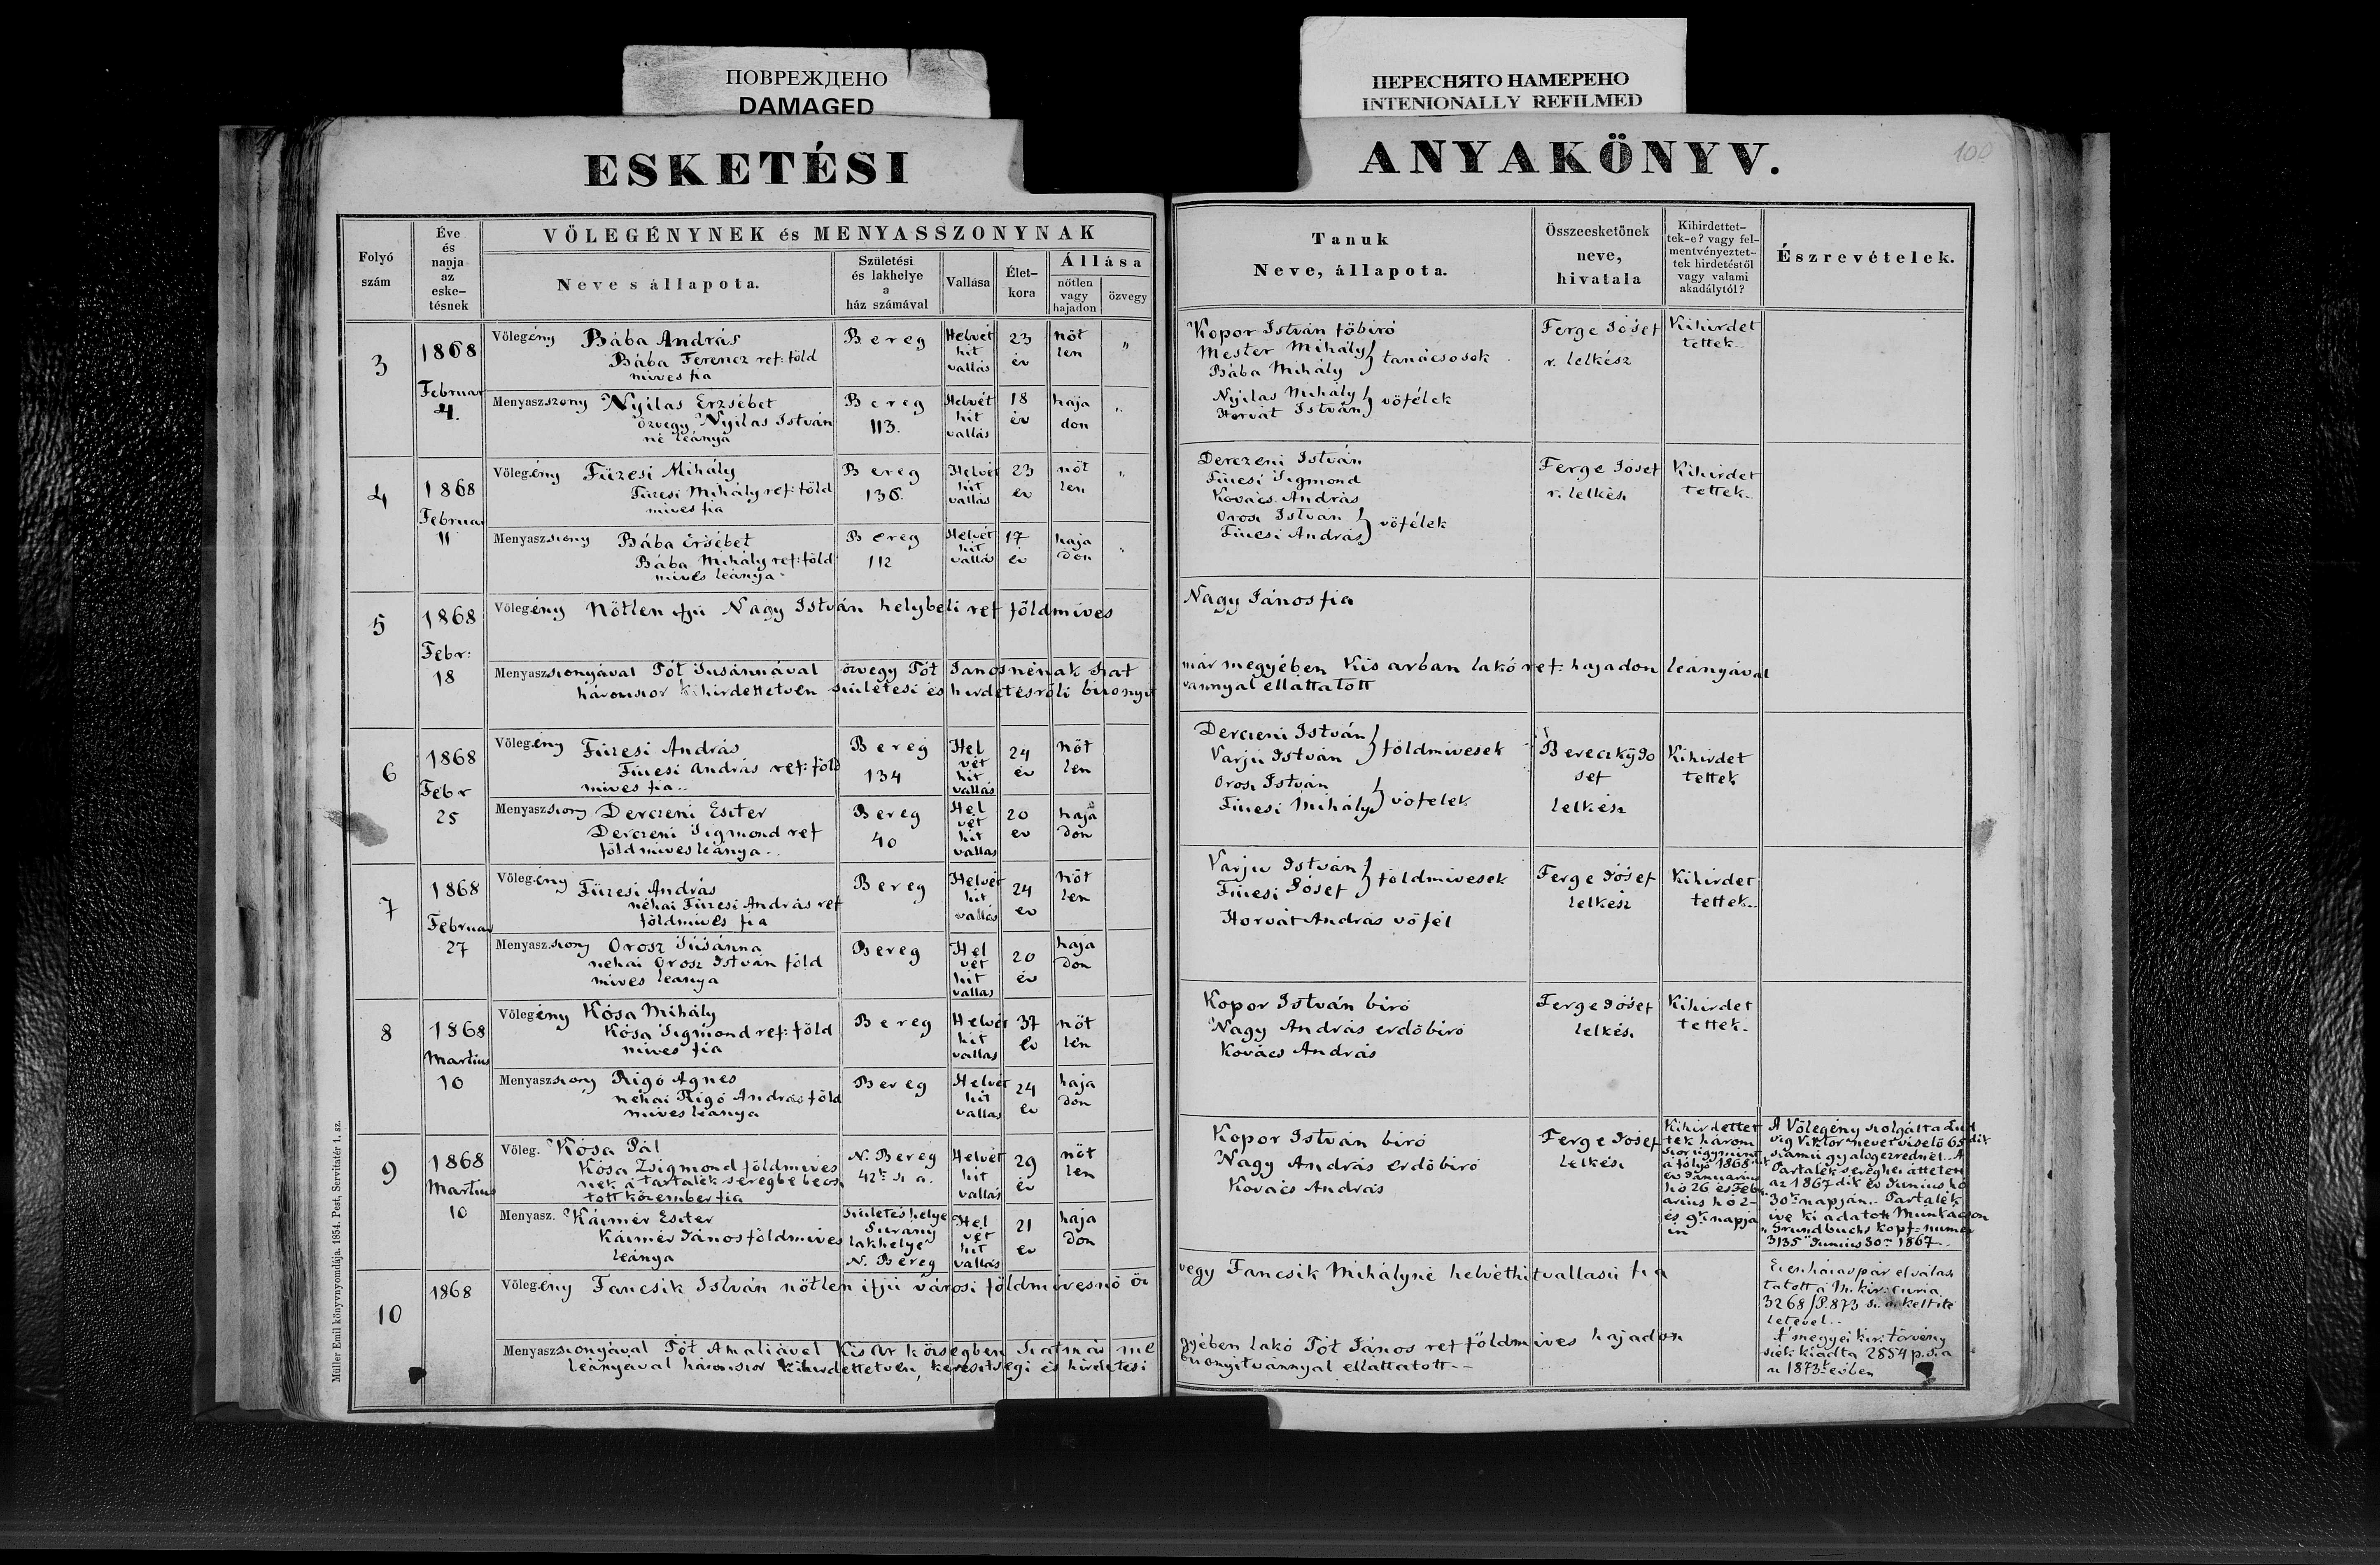 ПОВРЕЖДЕНО
DAMAGED
ПЕРЕСНЯТО НАМЕРЕНО
INTENIONALLY REFILMED
ESKETÉSI
ANYAKÖNYV.
100
Folyó
szám
Éve
és
napja
az
eske-
tésnek
VŐLEGÉNYNEK és MENYASSZONYNAK
Neve s állapota.
Születési
és lakhelye
a
ház számával
Vallása
Élet-
kora
Állása
nőtlen
vagy
hajadon
özvegy
Tanuk
Neve, állapota.
Összeesketőnek
neve,
hivatala
Kihirdettet-
tek-e? vagy fel-
mentvényeztet-
tek hirdetéstől
vagy valami
akadálytól?
Észrevételek.
3
1868
Februar
4.
Vőlegény Bába András
Bába Ferencz ref: föld
mives fia
Bereg
Helvét
hit
vallás
23
év
nőt
len
„
Menyaszszony Nyilas Erzsébet
özvegy Nyilas István
né leánya
Bereg
113.
Helvét
hit
vallás
18
év
haja
don
„
Kopor István főbiró
Mester Mihály
Bába Mihály } tanácsosok
Nyilas Mihály
Horvát István } vőfélek
Ferge Jósef
r. lelkész
Kihirdet
tettek
4
1868
Februar
11
Vőlegény Füzesi Mihály
Füzesi Mihály ref: föld
mives fia
Bereg
136.
Helvét
hit
vallás
23
év
nőt
len
„
Menyaszszony Bába Ersébet
Bába Mihály ref: föld
mives leánya
Bereg
112
Helvét
hit
vallás
17
év
haja
don
„
Derczeni István
Füzesi Sigmond
Kovács András
Orosz István
Füzesi András } vőfélek
Ferge Jósef
r. lelkész
Kihirdet
tettek
5
1868
Febr:
18
Vőlegény Nőtlen ifju Nagy István helybeli ref földmives
Nagy János fia
Menyaszszonyával Tót Susánnával özvegy Tót Janosnénak Szat
már megyében Kis arban lakó ref: hajadon leányával
háromszor kihirdettetvén születési és hirdetésrőli bizonyit
vannyal elláttatott
6
1868
Febr
25
Vőlegény Füzesi András
Füzesi András ref: föld
mives fia
Bereg
134
Hel
vét
hit
vallás
24
év
nőt
len
Menyaszszony Derczeni Eszter
Derczeni Sigmond ref
földmives leánya
Bereg
40
Hel
vét
hit
vallas
20
ev
haja
don
Derczeni István
Varju István } földmivesek
Orosz István
Füzesi Mihály } vőfelek
Bereczky Jo
sef
lelkész
Kihirdet
tettek
7
1868
Februar
27
Vőlegény Füzesi András
néhai Füzesi András ref
földmives fia
Bereg
Helvét
hit
vallás
24
ev
nőt
len
Menyaszszony Orosz Susánna
nehai Orosz István föld
mives leanya
Bereg
Hel
vét
hit
vallas
20
év
haja
don
Varju István
Füzesi Jósef } földmivesek
Horvát András vőfél
Ferge Jósef
lelkész
Kihirdet
tettek
8
1868
Martius
10
Vőlegény Kósa Mihály
Kósa Sigmond ref: föld
mives fia
Bereg
Helvét
hit
vallas
37
ev
nőt
len
Menyaszszony Rigó Agnes
néhai Rigó András föld
mives leánya
Bereg
Helvét
hit
vallas
24
ev
haja
don
Kopor István biró
Nagy András erdőbiró
Kovács András
Ferge Jósef
lelkész
Kihirdet
tettek
9
1868
Martius
10
Vőleg. Kósa Pál
Kósa Zsigmond földmives
nek a tartalék seregbe beosz
tott közember fia
N. Bereg
42k sz a.
Helvét
hit
vallás
29
év
nőt
len
Menyasz. Kázmér Eszter
Kázmér János földmives
leánya
Születés helye
Surány
lakhelye
N. Bereg
Hel
vét
hit
vallás
21
ev
haja
don
Kopor István biró
Nagy András erdőbiró
Kovács András
Ferge Jósef
Lelkész
Kihirdettet
tek három
szor úgymint
a folyó 1868
ev Januarius
hó 26 és Febr
arius hó 2-
és 9k napja
in
A Vőlegény szolgálta Lud
vig Viktor nevet viselő 65dik
számú gyalogezrednél. A
Tartalék sereghez áttetett
az 1867dik év Junius hó
30k napján. Tartalék
ive kiadatott Munkácson
Grundbuchs kopf numer
3135 Junius 30n 1867
10
1868
Vőlegény Fancsik István nőtlen ifju városi földmivesnő öz
vegy Fancsik Mihályné helvéthitvallasú fia
Menyaszszonyával Tót Amaliával Kis Ar községben Szatmár me
gyében lakó Tót János ref földmives hajadon
leányával háromszor kihirdettetvén, keresztségi és hirdetési
bizonyitvánnyal elláttatott
Ezen házaspár elválasz
tatott a M. kir: curia
3268/P.873 sz. a kelt ité
letével
A megyei kir. törvény
szék kiadta 2554 p. sz. a
az 1873k évben
Müller Emil könyvnyomdája. 1854. Pest, Servitatér 1. sz.